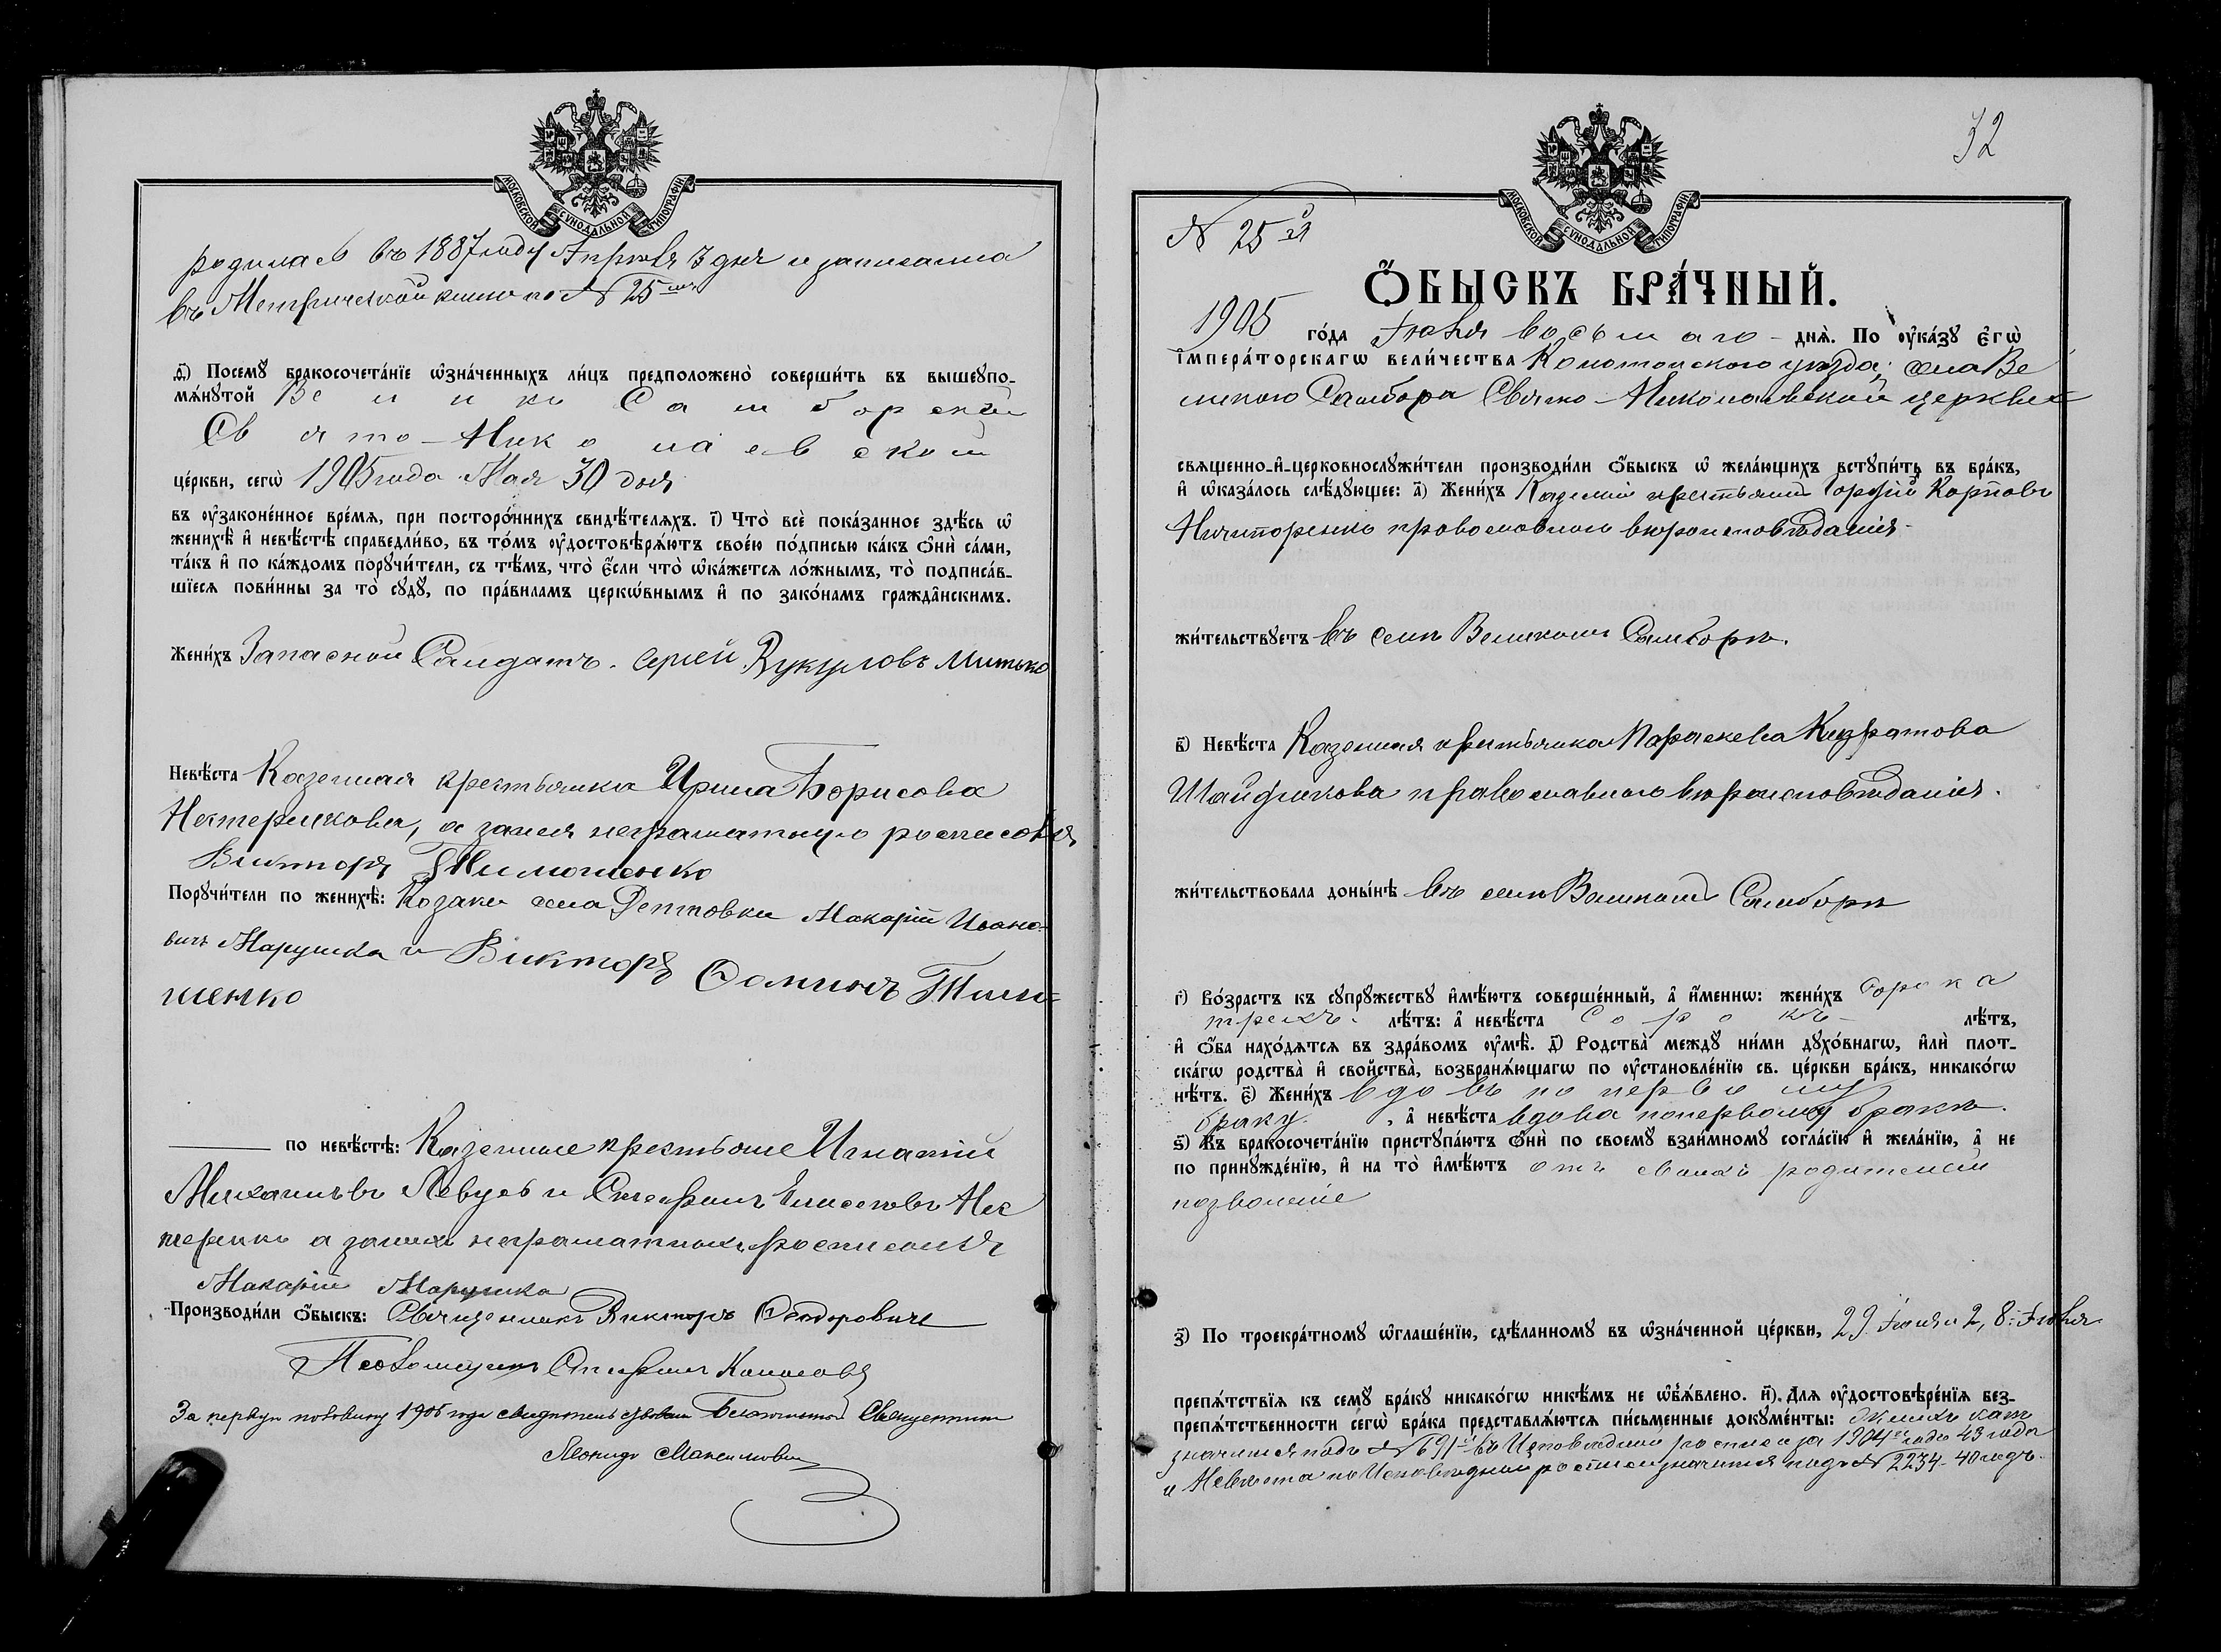 МОСКОВСКОЙ СѴНОДАЛЬНОЙ ТИПОГРАФІИ
родилась въ 1887 году Апреля 3 дня и записанна
въ Метрической книге по № 25
ѳ҃) Посемꙋ бракосочета́нїе ѡ҆зна́ченныхъ ли́цъ предположено̀ соверши́ть въ вышеꙋпо-
мѧ́нꙋтой Велико Самборской
Свято-Николаевской
це́ркви, сегѡ̀ 1905 года Мая 30 дня
въ ᲂу҆законе́нное вре́мѧ, при посторо́ннихъ свидѣ́телѧхъ. і҃) Что̀ всѐ пока́занное здѣ́сь ѡ҆
женихѣ̀ и҆ невѣ́стѣ справедли́во, въ то́мъ ᲂу҆достовѣрѧ́ютъ свое́ю по́дписью ка́къ ѻ҆нѝ са́ми,
та́къ и҆ по ка́ждомъ порꙋчи́тели, съ тѣ́мъ, что̀ є҆́сли что̀ ѡ҆ка́жетсѧ ло́жнымъ, то̀ подписа́в-
шїесѧ пови́нны за то̀ сꙋдꙋ̀, по пра́виламъ церкѡ́внымъ и҆ по зако́намъ гражда̑нскимъ.
Жени́хъ Запасной Солдатъ. Сергей Вукуловъ Митько
Невѣ́ста Казенная крестьянка Ирина Борисова
Нестеренкова, а за нея неграматную росписался
Викторъ Тимошенко
Порꙋчи́тели по женихѣ̀: Козаки села Дептовки Макарій Ивано-
вичъ Марушка и Викторъ Фоминъ Тимо=
шенко
по невѣ́стѣ: Казенные крестьяне Игнатій
Михаиловъ Левусь и Стефанъ Елисеевъ Нес
теренко а за них неграматных росписался
Макарій Марушка
Производи́ли ѻ҆́быскъ: Священникъ Викторъ Федоровичъ
Псаломщикъ Стефанъ
За первую половину 1905 года свидетельствовалъ Благочинный Священникъ
Леонидъ Максимовичъ
32
МОСКОВСКОЙ СѴНОДАЛЬНОЙ ТИПОГРАФІИ
№ 25й
Ѻ҆́БЫСКЪ БРА́ЧНЫЙ.
1905 го́да Іюля восьмаго - днѧ̀. По ᲂу҆ка́зꙋ є҆гѡ̀
і҆мпера́торскагѡ вели́чества Конотопского уѣзда; села Ве
ликого Самбора Свято-Николаевской церкви
свѧщенно-и҆-церковнослꙋжи́тели производи́ли ѻ҆́быскъ ѡ҆ жела́ющихъ встꙋпи́ть въ бра́къ,
и҆ ѡ҆каза́лось слѣ́дꙋющее: а҃) Жени́хъ Казеный крестьянинъ Гордѣй Карповъ
Ничипоренко православного вѣроисповѣданія -
жи́тельствꙋетъ въ селѣ Великомъ Самборѣ.
в҃) Невѣ́ста Казенная крестьянка Параскева Кодратова
православного вѣроисповѣданія.
жи́тельствовала доны́нѣ въ селѣ Великомъ Самборѣ
г҃) Во́зрастъ къ сꙋпрꙋжествꙋ и҆мѣ́ютъ соверше́нный, а҆ и҆́меннѡ: жени́хъ сорока
трехъ лѣ́тъ: а҆ невѣ́ста сорокъ - лѣ́тъ,
и҆ ѻ҆́ба нахо́дѧтсѧ въ здра́вомъ ᲂу҆мѣ̀. д҃) Родства̀ междꙋ̀ ни́ми дꙋхо́внагѡ, и҆лѝ плот-
ска́гѡ родства̀ и҆ сво́йства̀, возбранѧ́ющагѡ по ᲂу҆становле́нїю св. це́ркви бра́къ, никако́гѡ
нѣ́тъ. є҃) Жени́хъ вдовъ по первому
браку. , а҆ невѣ́ста вдова по первому браку.
ѕ҃) Къ бракосочета́нїю пристꙋпа́ютъ ѻ҆нѝ по своемꙋ̀ взаи́мномꙋ согла́сїю и҆ жела́нїю, а҆ не
по принꙋжде́нїю, и҆ на то̀ и҆мѣ́ютъ отъ своихъ родителей
позволеніе
з҃) По троекра́тномꙋ ѡ҆глаше́нїю, сдѣ́ланномꙋ въ ѡ҆зна́ченной це́ркви, 29. Іюня и 2, 8: Іюля
препѧ́тствїѧ къ семꙋ̀ бра́кꙋ никако́гѡ никѣ́мъ не ѡ҆б̾ѧ́влено. и҃). Длѧ ᲂу҆достовѣре́нїѧ без-
препѧ́тственности сегѡ̀ бра́ка представлѧ́ютсѧ пи́сьменные докꙋме́нты:
значится подъ № 691й въ Исповедной росписи за 1904й годъ 43 года
и Невѣста по Исповедной росписи значится подъ № 2234 - 40 годъ.